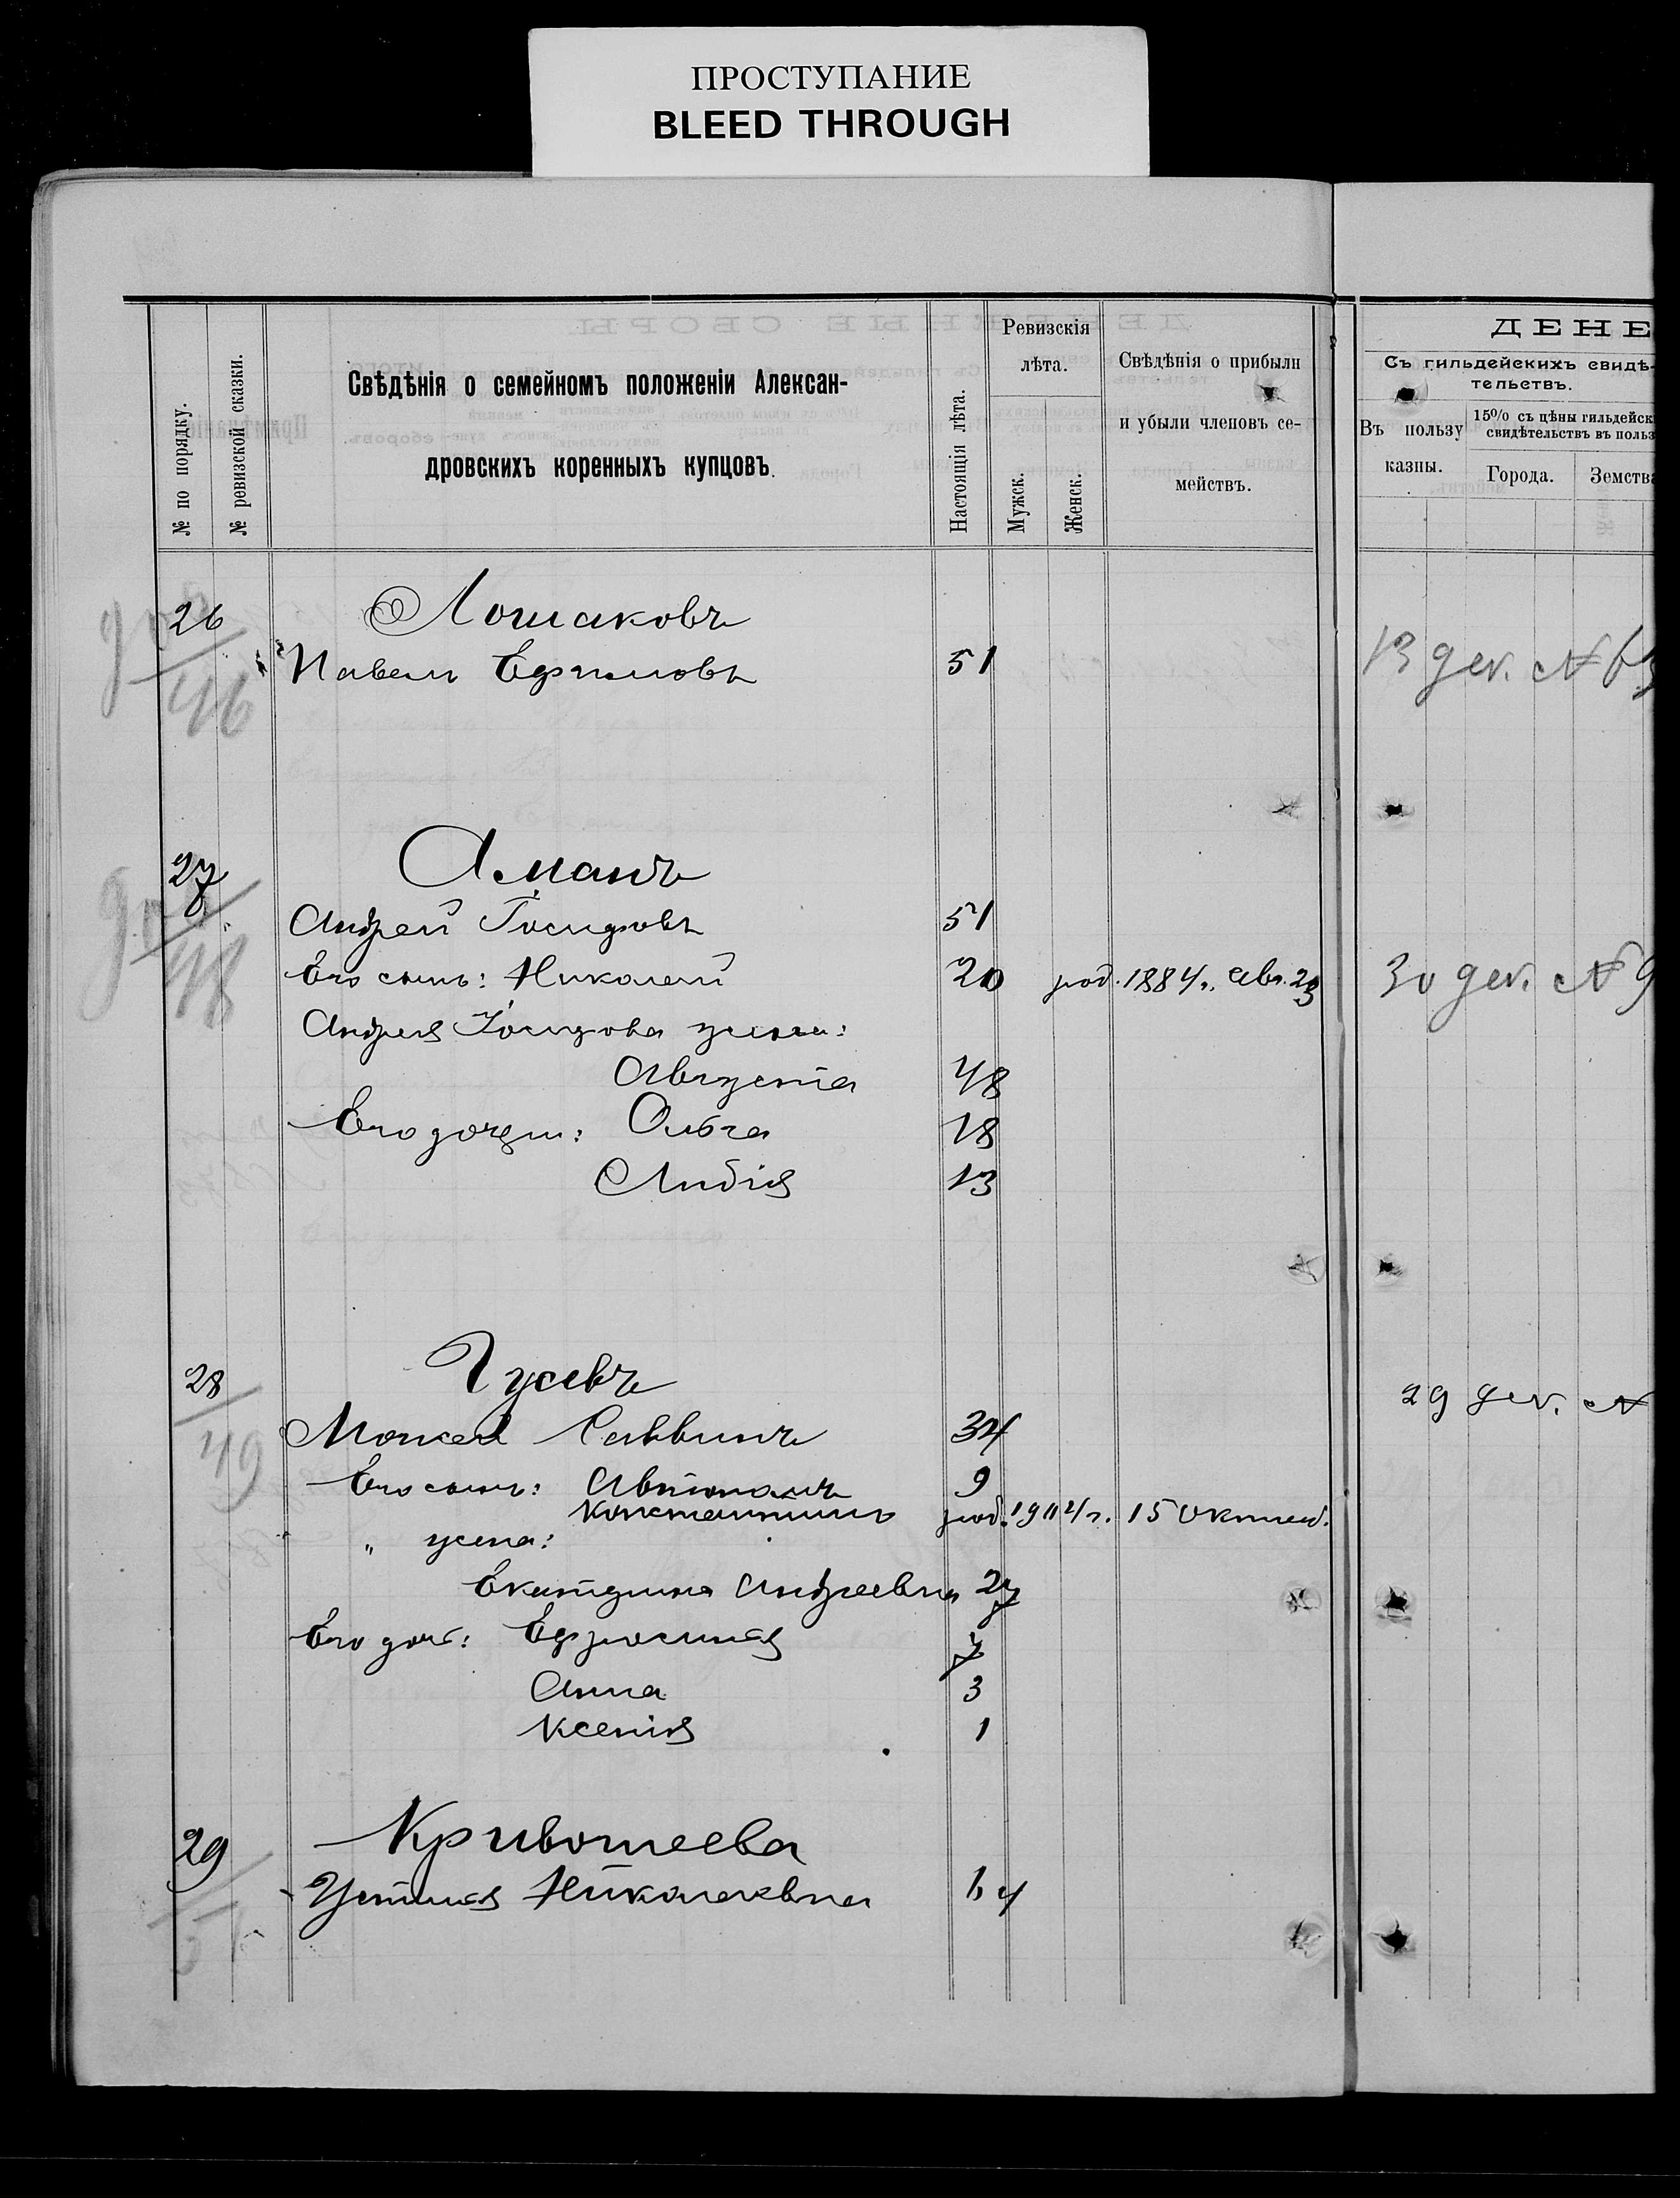 ПРОСТУПАНИЕ
BLEED THROUGH
№ по порядку.
№ ревизской сказки.
Свѣдѣнія о семейномъ положеніи Алексан-
дровскихъ коренныхъ купцовъ.
Настоящія лѣта.
Ревизскія
лѣта.
Мужск.
Женск.
Свѣдѣнія о прибыли
и убыли членовъ се-
мействъ.
ДЕНЕ
Съ гильдейскихъ свидѣ-
тельствъ.
Въ пользу
казны.
15% съ цѣны гильдейск
свидѣтельствъ въ польз
Города.
Земства
26 Лошаковъ
46
Павелъ Ефимовъ 51 13 дек. №
27 Аманъ
48
Андрей Іосифовъ 51
Его сынъ: Николай 20 род. 1884 г. Авг. 23 30 дек. № 9
Андрея Іосифова жена:
Августа 48
Его дочери: Ольга 18
Лидія 13
28 Гусевъ
49 29 дек. №
Моисей Саввинъ 34
Его сынъ: Автономъ 9
Константинъ род. 1904 г. 15 Октяб.
" жена:
Екатерина Андреевна 27
Его доч: Ефросинія 7
Анна 3
Ксенія 1
29 Кривошеева
51
Устинія Николаевна 64